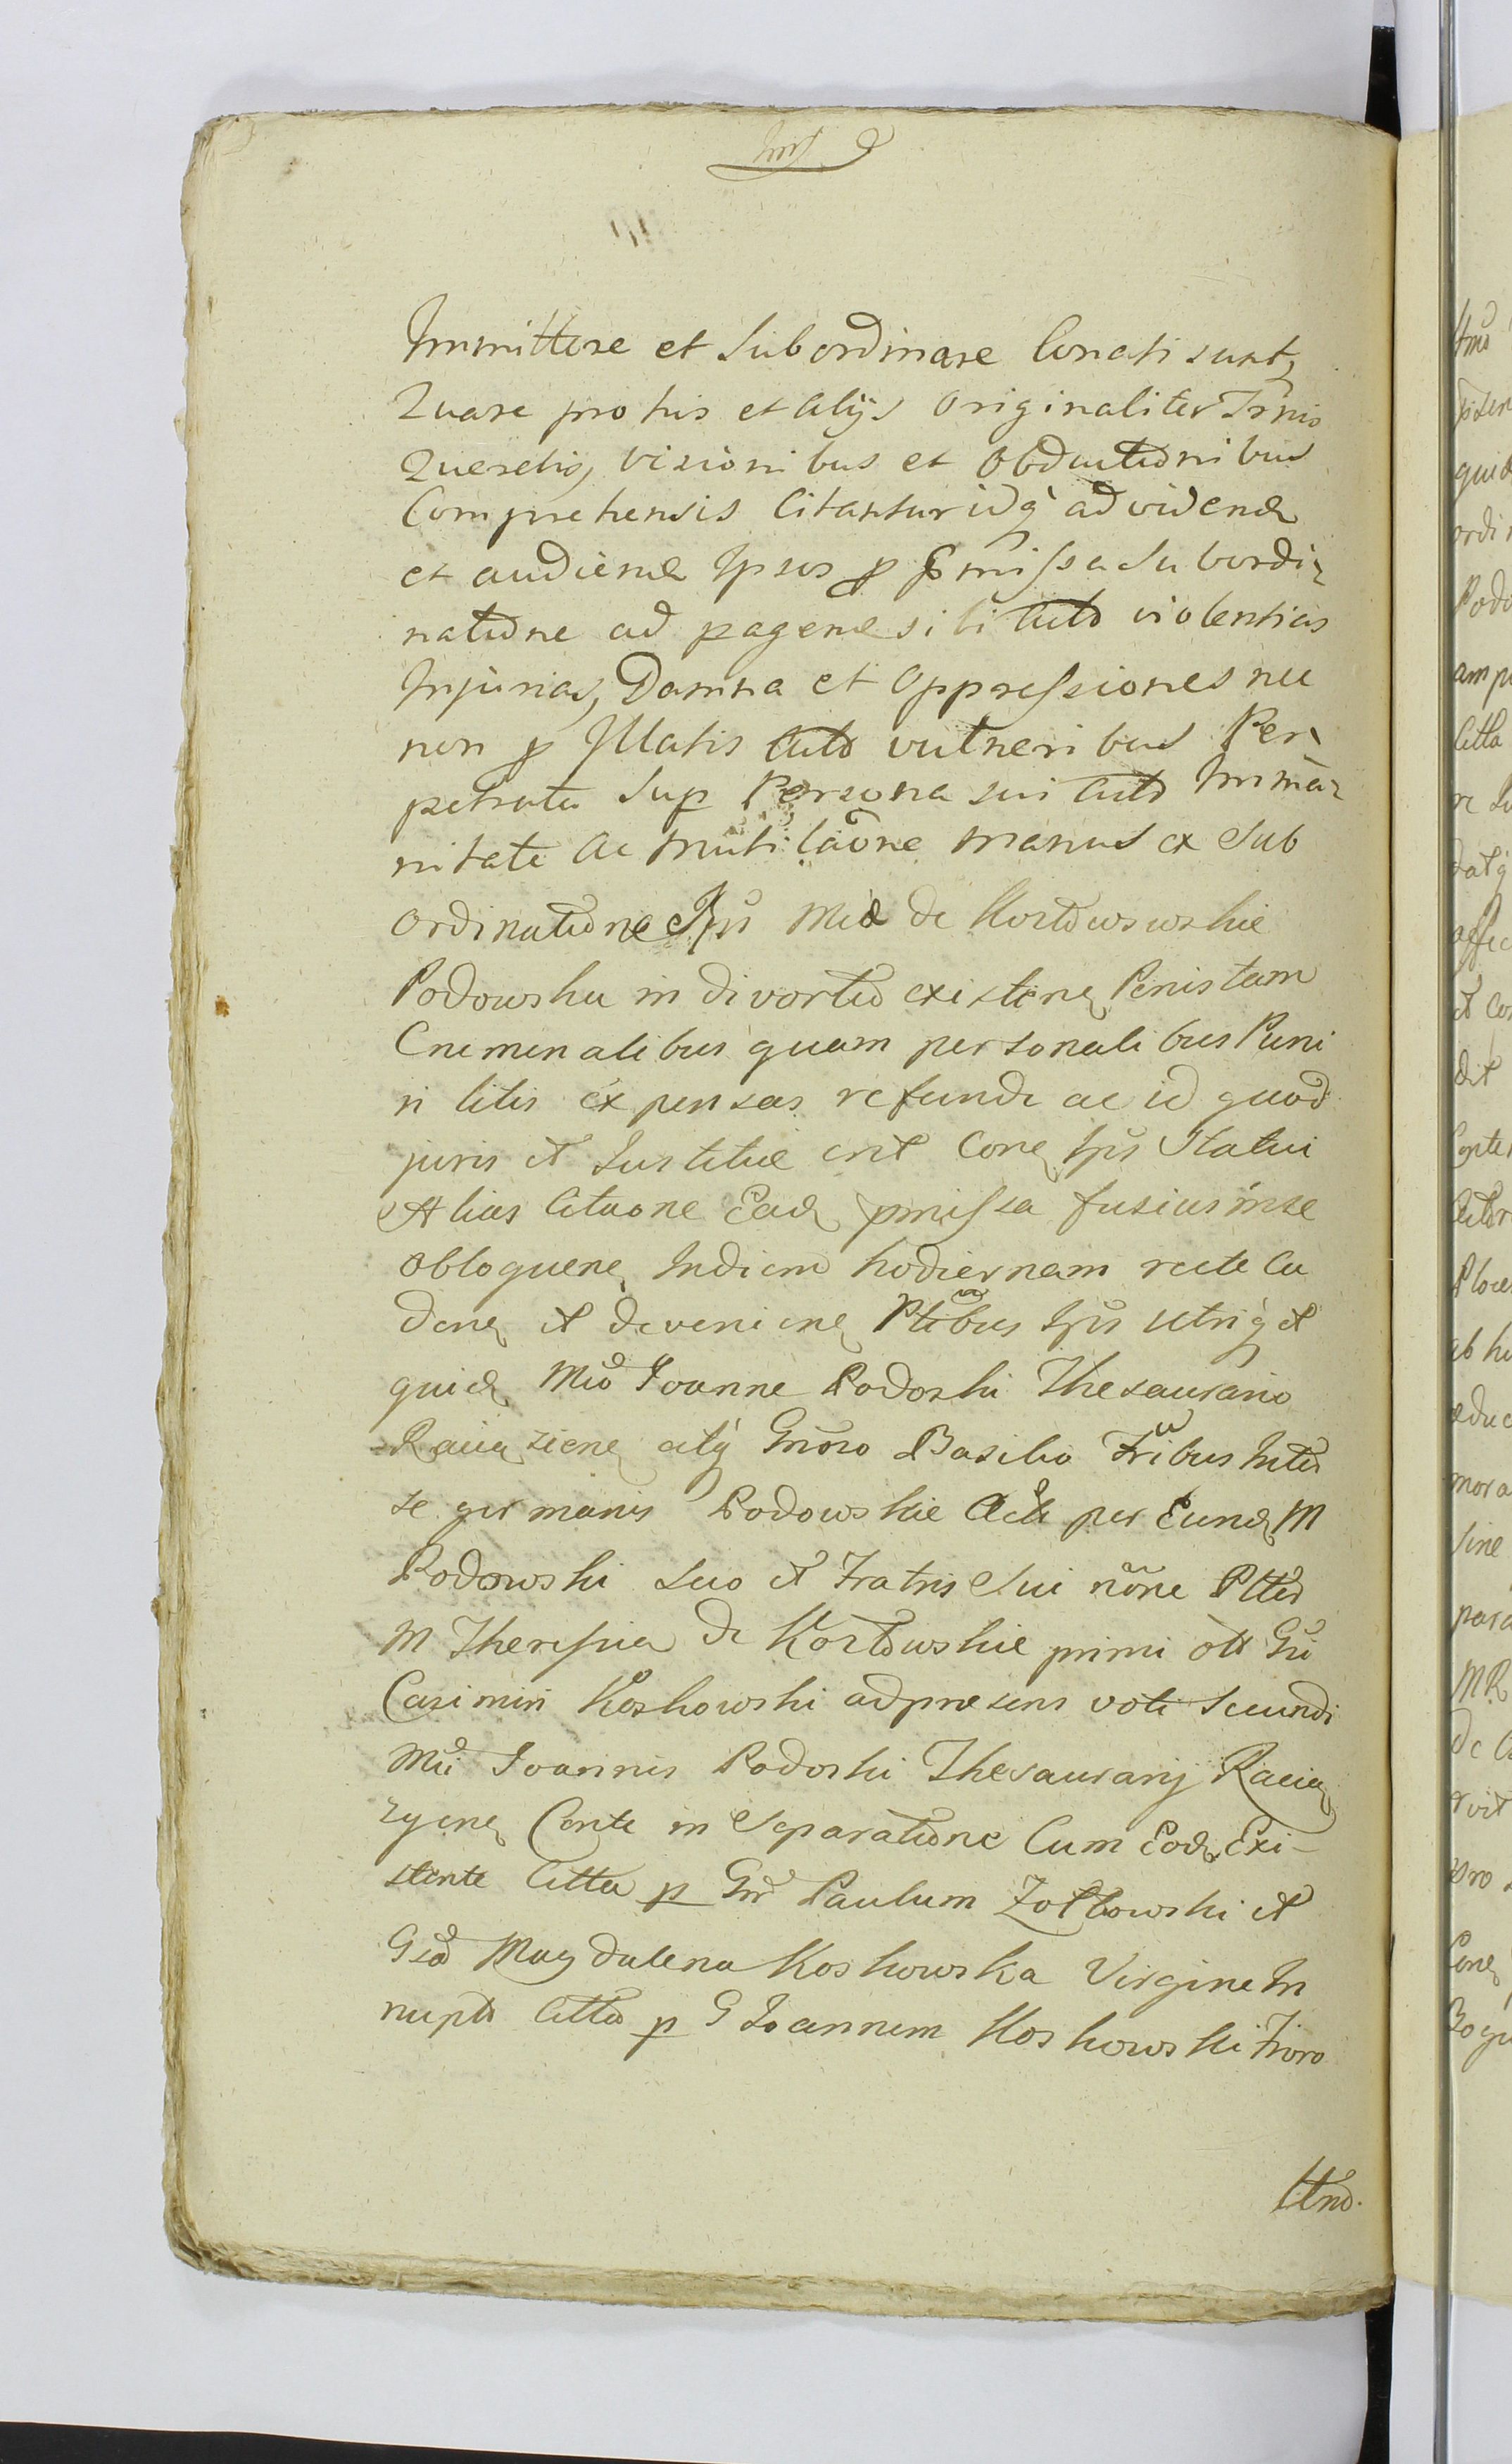 Immittere et Subordinare Conati sunt,
Quare pro his et alijs Originaliter Trnis
Querelis, visionibus et Obductionibus
Comprehensis Citantur idq ad vidend
et audiend Ipsos p pmissa Subordi
natione ad pagend sibi Citto violentias
Injurias, Damna et Oppressiones nec
non p Illatis Citto vulneribus Per
petrata Sup Persona sui Citto Imma
nitate ac Mutilaone manus ex Sub
Ordinatione Ips Mta de Kozlowskie
Podowska in divortio existend Penis tam
Criminalibus quam personalibus Puni
ri litis expensas refundi ac id quod
juris et Justitiae erit Cone Ips Statui
Alias Citaone Ead pmissa fusius in se
obloquene In diem hodiernam recte Ca
dene et deveniene Ptibus Ips utriq et
quid Mco Joanne Podoski Thesaurario
Raciaziene atq Gnoso Basilio Fribus Inter
se germanis Podowskie Acti per Eund M
Podowski Suo et Fratris Sui noне Ptte
M Theressia de Kozlowskie primi ott Gsi
Casimiri Koskowski ad presens voti Secundi
Mci Joannis Podoski Thesaurarij Racia
zyene Conte in Separatione Cum Eod Exi-
stente Citta p Gm Paulum Zoltowski et
Gsa Magdalena Koskowska Virgine In
nupta Citta p G Joannem Koskowski Froro
Ittmo.